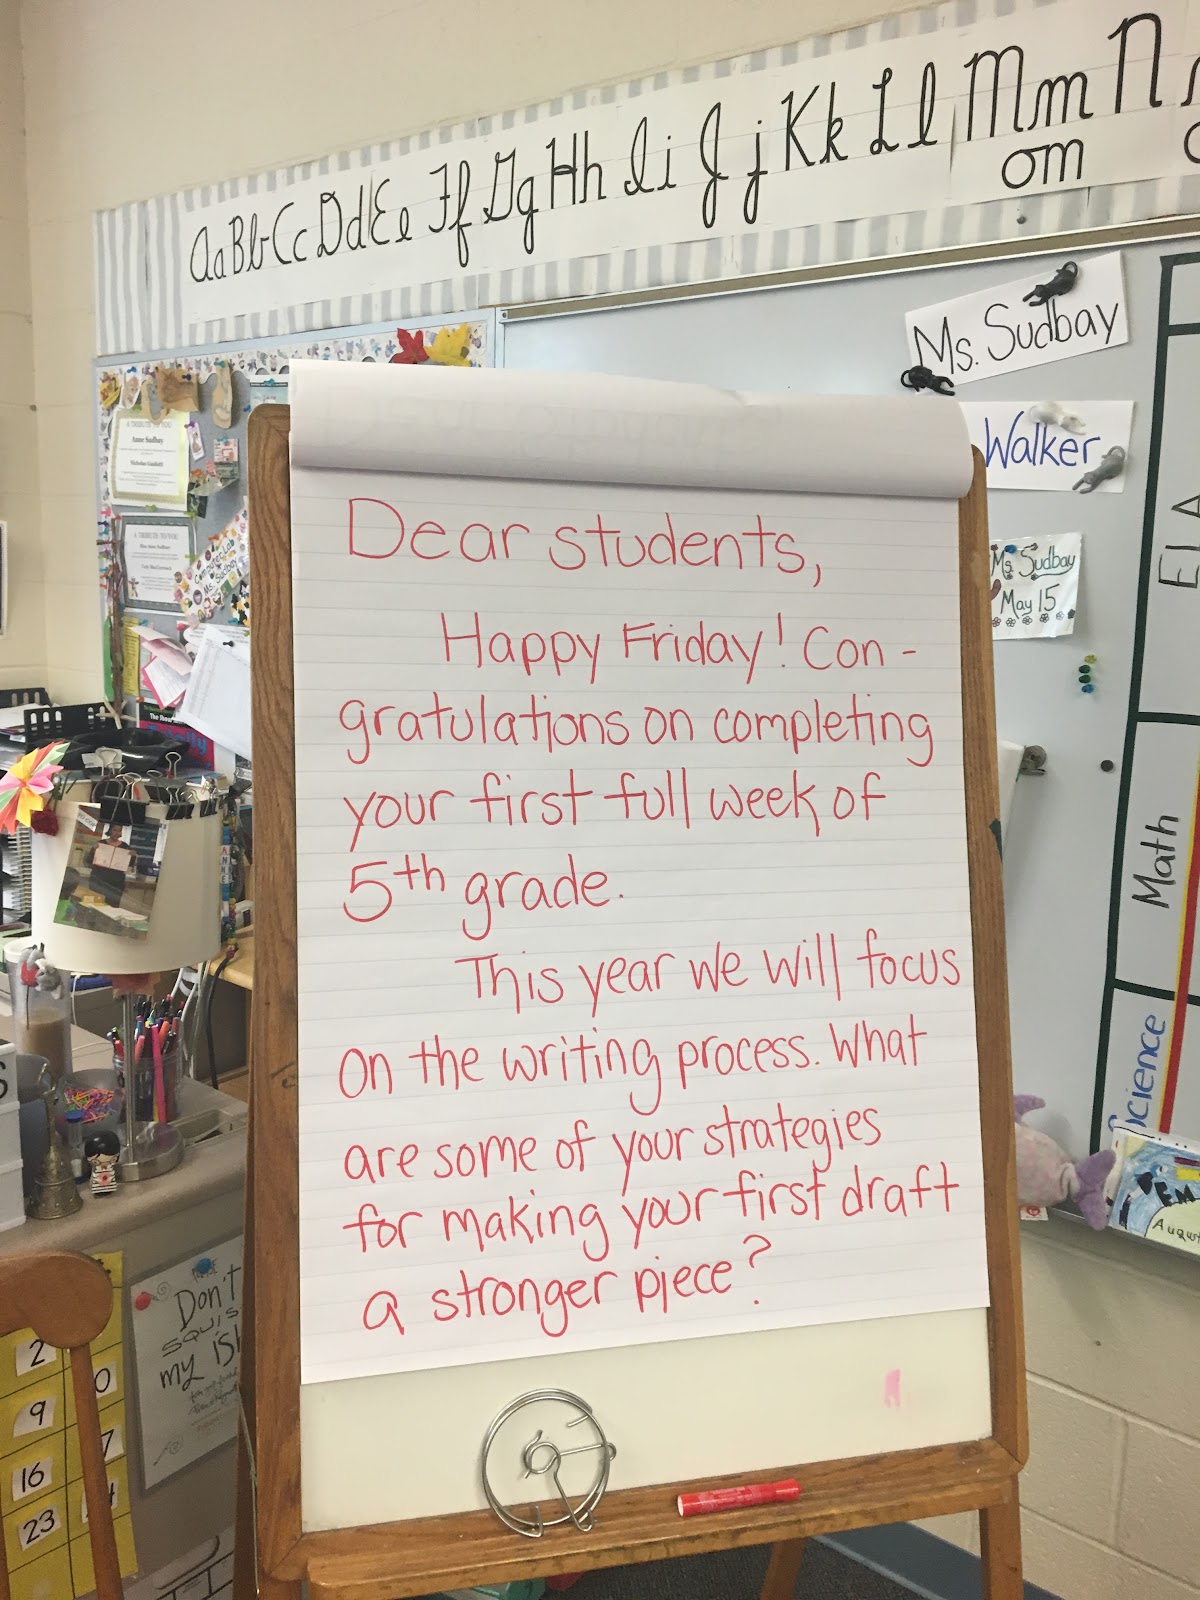 Aa Bb Cc Dd Ee Ff Gg Hh Ii Jj Kk Ll Mm N
om
Ms. Sudbay
Walker
Ms. Sudbay
May 15
ELA
Math
Science
August
A TRIBUTE TO YOU
Anne Sudbay
A TRIBUTE TO YOU
Dear students,
Happy Friday! Con -
gratulations on completing
your first full week of
5th grade.
This year we will focus
on the writing process. What
are some of your strategies
for making your first draft
a stronger piece?
Don't
SQUIS
my ISl
2
9
16
23